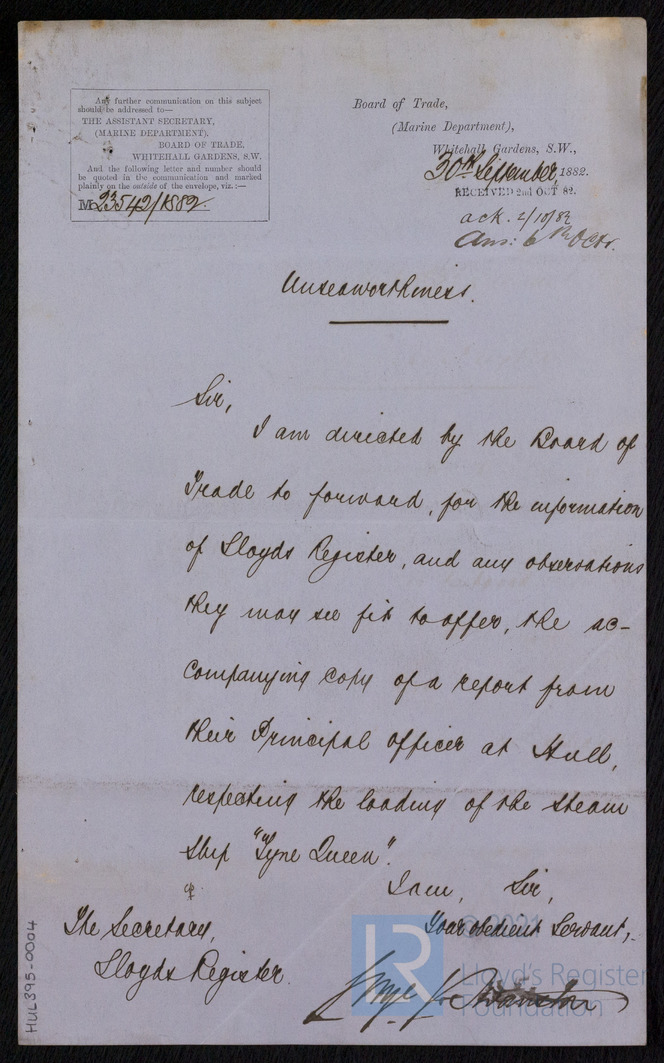 Any further communication on this subject
should be addressed to—
THE ASSISTANT SECRETARY,
(MARINE DEPARTMENT),
BOARD OF TRADE,
WHITEHALL GARDENS, S.W.
And the following letter and number should
be quoted in the communication and marked
plainly on the outside of the envelope, viz.:—
M 23542/1882.
Board of Trade,
(Marine Department),
Whitehall Gardens, S.W.,
30th September, 1882.
RECEIVED 2nd OCT 82.
ack. 2/10/82
Ans: 6th Octr.
Unseaworthiness.
Sir,
I am directed by the Board of
Trade to forward, for the information
of Lloyds Register, and any observations
they may see fit to offer, the ac-
companying copy of a report from
their Principal Officer at Hull,
respecting the loading of the steam
ship "Tyne Queen".
I am, Sir,
Your obedient Servant,
The Secretary,
Lloyds Register.
© 2021
LR
Lloyd's Register
Foundation
HUL395-0004